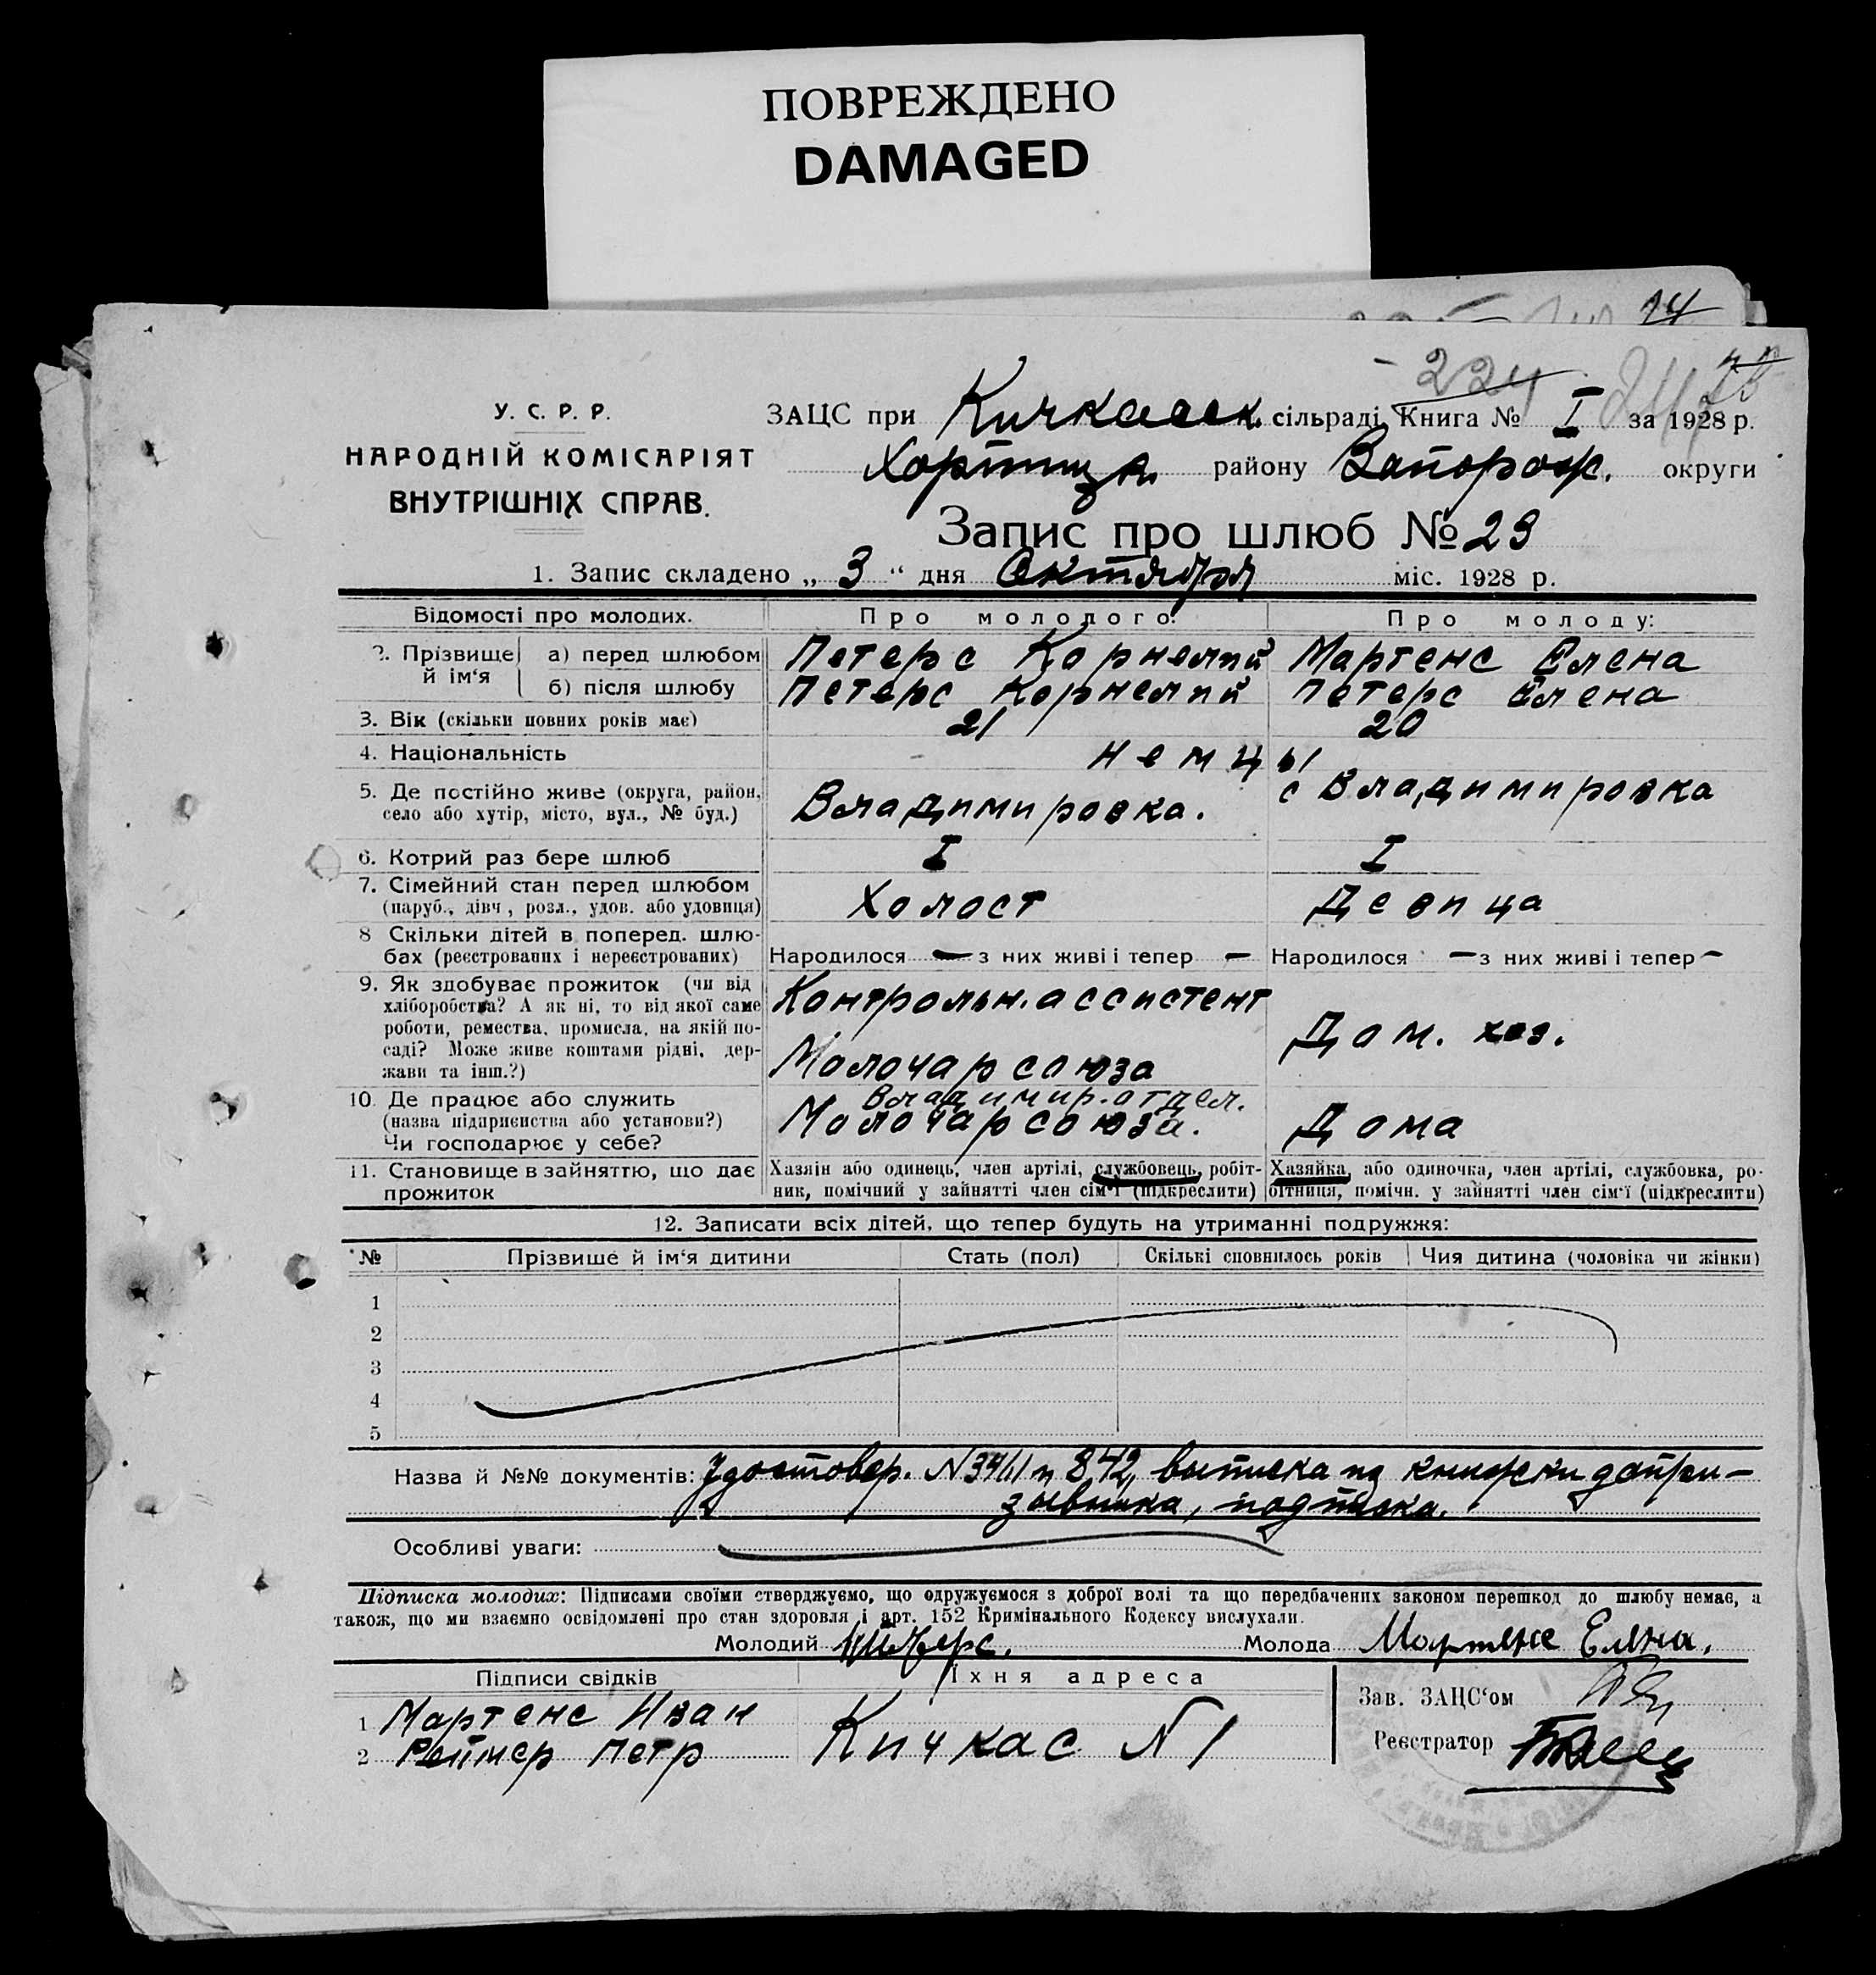 ПОВРЕЖДЕНО
DAMAGED
14
224
У. С. Р. Р.
НАРОДНІЙ КОМІСАРІЯТ
ВНУТРІШНІХ СПРАВ.
ЗАЦС при Кичкасск. сільраді Книга № I за 1928 р.
Хортица району Запорож. округи
Запис про шлюб № 29
1. Запис складено „ 3 “ дня Октября міс. 1928 р.
Відомості про молодих. Про молодого: Про молоду:
2. Прізвище й ім‘я а) перед шлюбом Петерс Корнелий Мартенс Елена
б) після шлюбу Петерс Корнелий Петерс Елена
3. Вік (скільки повних років має) 21 20
4. Національність немцы
5. Де постійно живе (округа, район, село або хутір, місто, вул., № буд.) Владимировка. с Владимировка
6. Котрий раз бере шлюб I I
7. Сімейний стан перед шлюбом Холост Девица
(паруб., дівч., розл., удов. або удовиця)
8 Скільки дітей в поперед. шлю-
бах (реєстрованих і нереєстрованих) Народилося — з них живі і тепер — Народилося — з них живі і тепер —
9. Як здобуває прожиток (чи від Контрольн. ассистент
хліборобства? А як ні, то від якої саме
роботи, ремества, промисла, на якій по- Дом. хоз.
саді? Може живе коштами рідні, дер- Молочарсоюза
жави та інш.?)
10. Де працює або служить Владимир. отдел.
(назва підприємства або установи?) Молочарсоюза. Дома
Чи господарює у себе?
11. Становище в зайняттю, що дає Хазяїн або одинець, член артілі, службовець, робіт- Хазяйка, або одиночка, член артілі, службовка, ро-
прожиток ник, помічний у зайнятті член сім‘ї (підкреслити) бітниця, помічн. у зайнятті член сім‘ї (підкреслити)
12. Записати всіх дітей, що тепер будуть на утриманні подружжя:
№ Прізвище й ім‘я дитини Стать (пол) Скількі сповнилось років Чия дитина (чоловіка чи жінки)
1
2
3
4
5
Назва й №№ документів: Удостовер. N 3461 и 842, выписка из книжки допри-
зывника, подписка.
Особливі уваги:
Підписка молодих: Підписами своїми стверджуємо, що одружуємося з доброї волі та що передбачених законом перешкод до шлюбу немає, а
також, що ми взаємно освідомлені про стан здоровля і арт. 152 Кримінального Кодексу вислухали.
Молодий Петерс. Молода Мартенс Елена.
Підписи свідків Їхня адреса
1 Мартенс Иван
2 Реймер Петр Кичкас N 1
Зав. ЗАЦС‘ом
Реєстратор